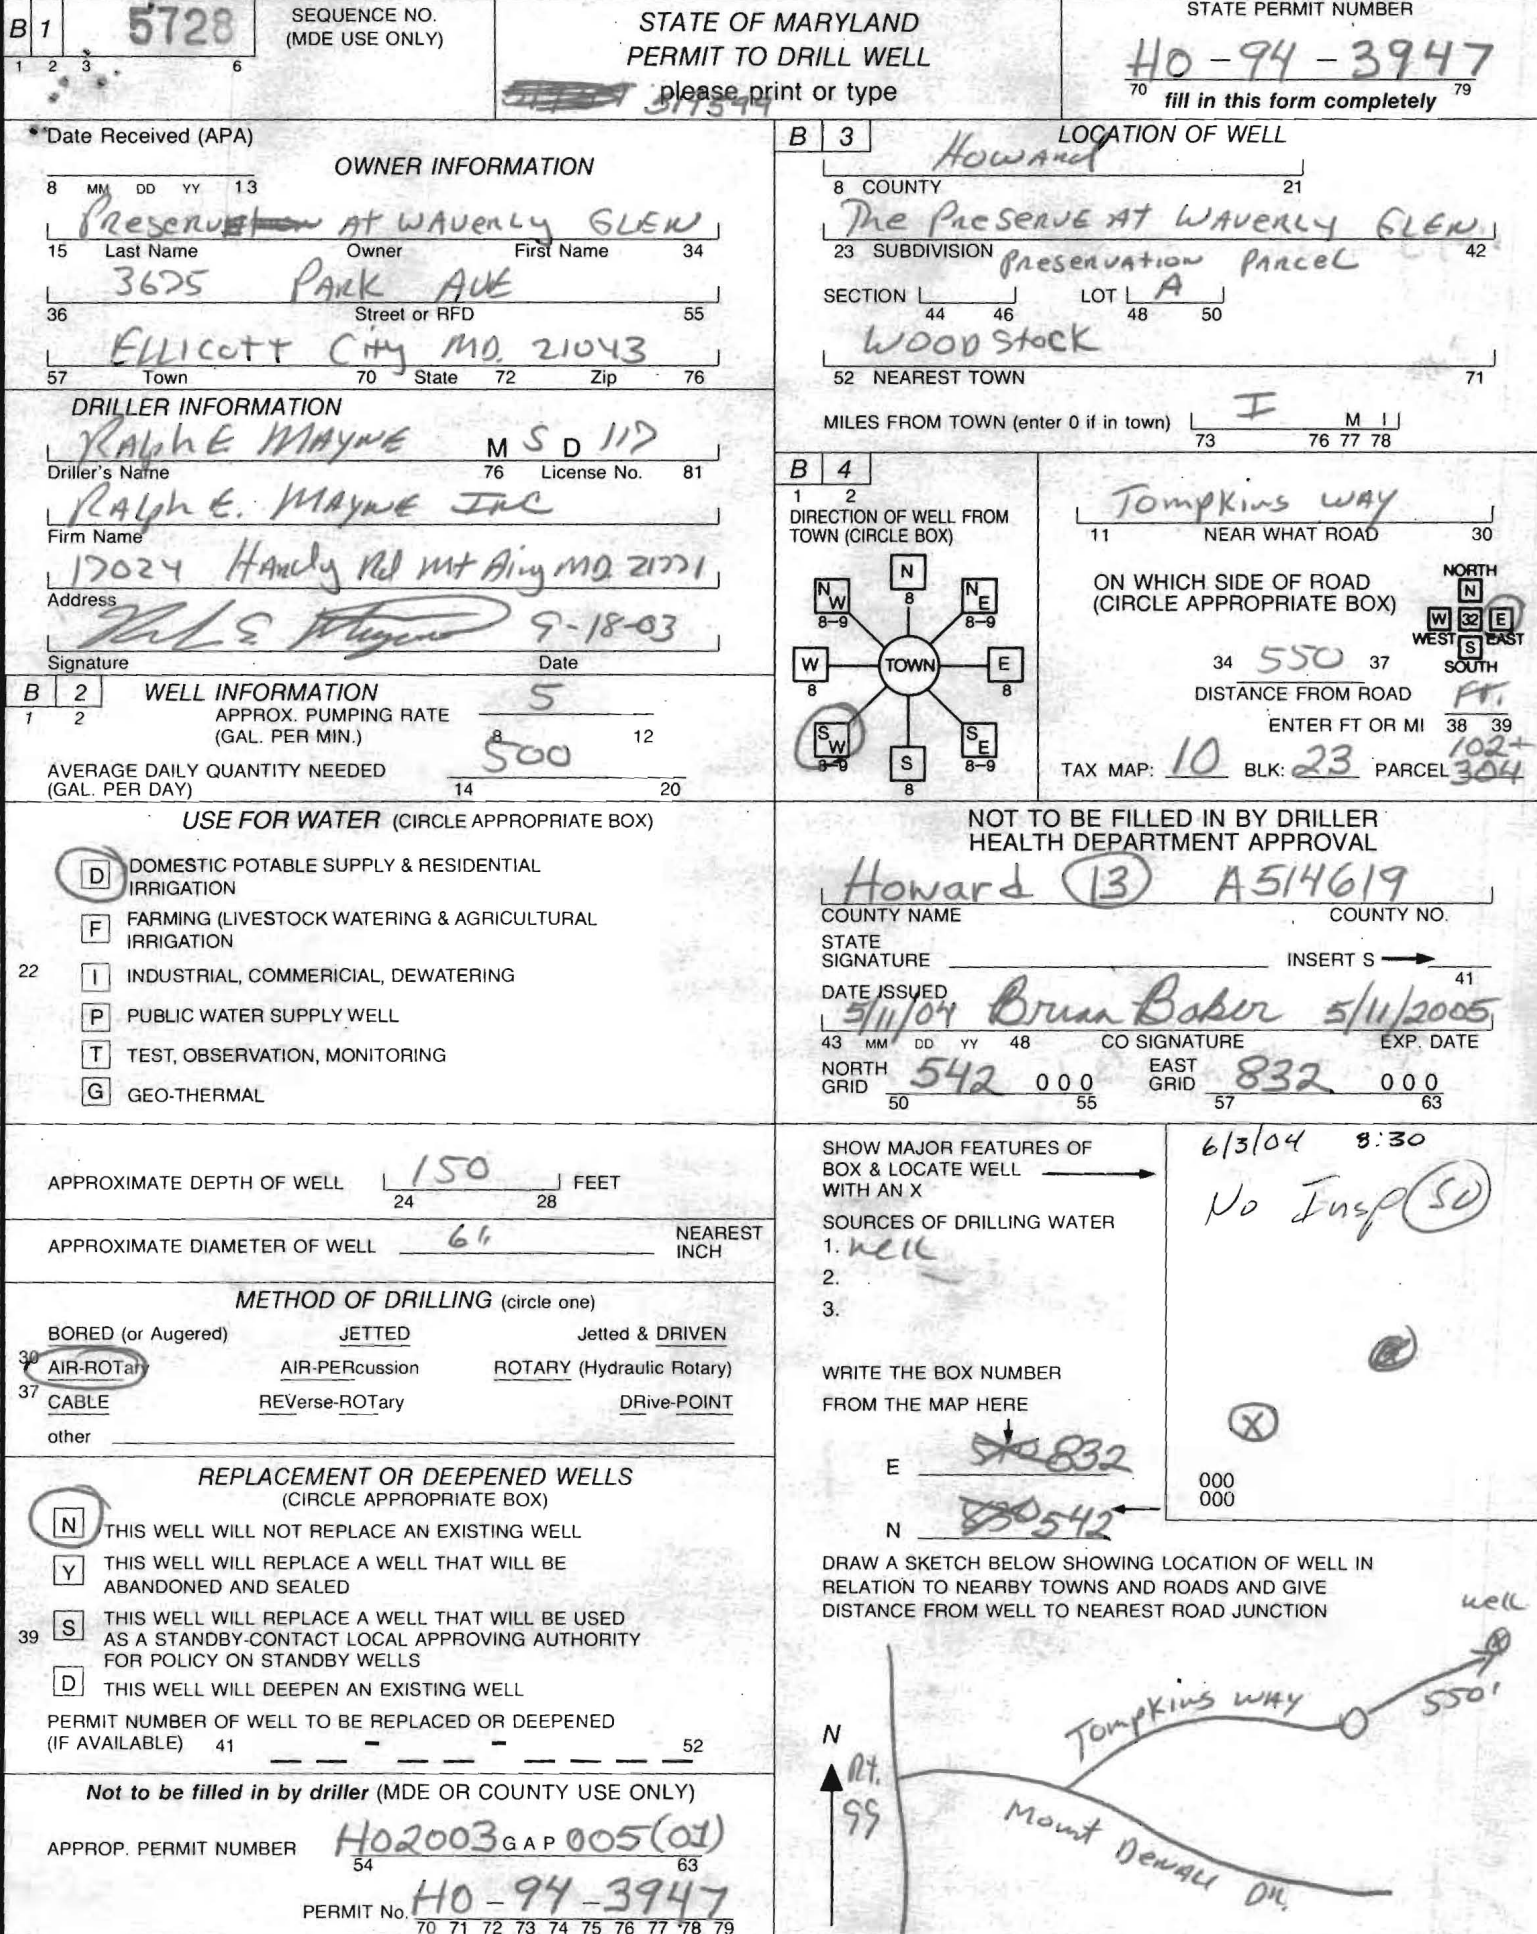 B 1 5728 SEQUENCE NO. (MDE USE ONLY)
1 2 3 6
STATE OF MARYLAND
PERMIT TO DRILL WELL
please print or type
STATE PERMIT NUMBER
HO-94-3947
70 79
fill in this form completely
Date Received (APA)
8 MM DD YY 13
OWNER INFORMATION
At WAVERLY GLEN
15 Last Name Owner First Name 34
3675 PARK AVE
36 Street or RFD 55
ELLICOTT City MD. 21043
57 Town 70 State 72 Zip 76
DRILLER INFORMATION
RALPH E MAYNE M S D 117
Driller's Name 76 License No. 81
RALPH E. MAYNE INC
Firm Name
17024 Hardy Rd Mt Airy MD 21771
Address
9-18-03
Signature Date
B 2 WELL INFORMATION
1 2
APPROX. PUMPING RATE (GAL. PER MIN.) 5
8 12
AVERAGE DAILY QUANTITY NEEDED (GAL. PER DAY) 500
14 20
USE FOR WATER (CIRCLE APPROPRIATE BOX)
D DOMESTIC POTABLE SUPPLY & RESIDENTIAL IRRIGATION
F FARMING (LIVESTOCK WATERING & AGRICULTURAL IRRIGATION
22 I INDUSTRIAL, COMMERICIAL, DEWATERING
P PUBLIC WATER SUPPLY WELL
T TEST, OBSERVATION, MONITORING
G GEO-THERMAL
APPROXIMATE DEPTH OF WELL 150 FEET
24 28
APPROXIMATE DIAMETER OF WELL 6" NEAREST INCH
METHOD OF DRILLING (circle one)
BORED (or Augered) JETTED Jetted & DRIVEN
30 AIR-ROTary AIR-PERcussion ROTARY (Hydraulic Rotary)
37 CABLE REVerse-ROTary DRive-POINT
other
REPLACEMENT OR DEEPENED WELLS
(CIRCLE APPROPRIATE BOX)
N THIS WELL WILL NOT REPLACE AN EXISTING WELL
Y THIS WELL WILL REPLACE A WELL THAT WILL BE
ABANDONED AND SEALED
39 S THIS WELL WILL REPLACE A WELL THAT WILL BE USED
AS A STANDBY-CONTACT LOCAL APPROVING AUTHORITY
FOR POLICY ON STANDBY WELLS
D THIS WELL WILL DEEPEN AN EXISTING WELL
PERMIT NUMBER OF WELL TO BE REPLACED OR DEEPENED
(IF AVAILABLE) 41 - - 52
Not to be filled in by driller (MDE OR COUNTY USE ONLY)
APPROP. PERMIT NUMBER HO2003 GAP 005(01)
54 63
PERMIT No. HO-94-3947
70 71 72 73 74 75 76 77 78 79
B 3 LOCATION OF WELL
Howard
8 COUNTY 21
The PRESERVE AT WAVERLY GLEN
23 SUBDIVISION 42
PRESERVATION PARCEL
SECTION LOT A
44 46 48 50
WOODSTOCK
52 NEAREST TOWN 71
MILES FROM TOWN (enter 0 if in town) I M I
73 76 77 78
B 4
1 2
DIRECTION OF WELL FROM
TOWN (CIRCLE BOX)
N
8
NW NE
8-9 8-9
W TOWN E
8 8
SW SE
8-9 8-9
S
8
Tompkins WAY
11 NEAR WHAT ROAD 30
ON WHICH SIDE OF ROAD
(CIRCLE APPROPRIATE BOX)
NORTH
N
W 32 E
WEST EAST
S
SOUTH
34 550 37
DISTANCE FROM ROAD
ENTER FT OR MI Ft.
38 39
TAX MAP: 10 BLK: 23 PARCEL 102+ 304
NOT TO BE FILLED IN BY DRILLER
HEALTH DEPARTMENT APPROVAL
Howard 13 A514619
COUNTY NAME COUNTY NO.
STATE
SIGNATURE INSERT S
41
DATE ISSUED
5/11/04 Brian Baker 5/11/2005
43 MM DD YY 48 CO SIGNATURE EXP. DATE
NORTH GRID 542 000 EAST GRID 832 000
50 55 57 63
SHOW MAJOR FEATURES OF
BOX & LOCATE WELL
WITH AN X
6/3/04 8:30
No Insp SD
SOURCES OF DRILLING WATER
1. well
2.
3.
WRITE THE BOX NUMBER
FROM THE MAP HERE
X
E 832
N 542
000
000
DRAW A SKETCH BELOW SHOWING LOCATION OF WELL IN
RELATION TO NEARBY TOWNS AND ROADS AND GIVE
DISTANCE FROM WELL TO NEAREST ROAD JUNCTION
well
Tompkins WAY
550'
N
Rt.
99
Mount DENALI DR.